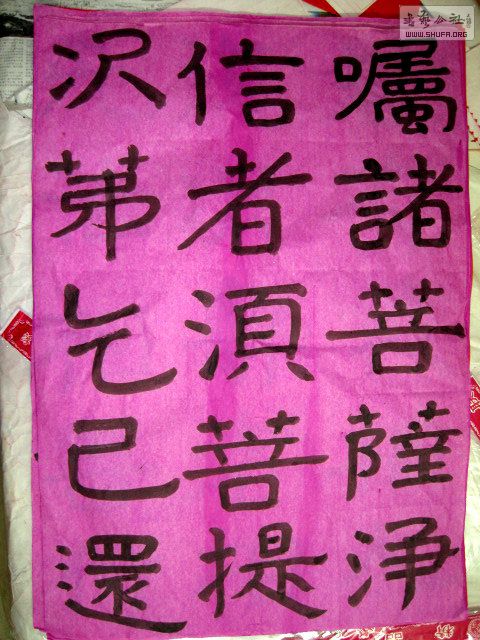 書藝公社
WWW.SHUFA.ORG
囑諸菩薩浄
信者湏菩提
次苐乞己還